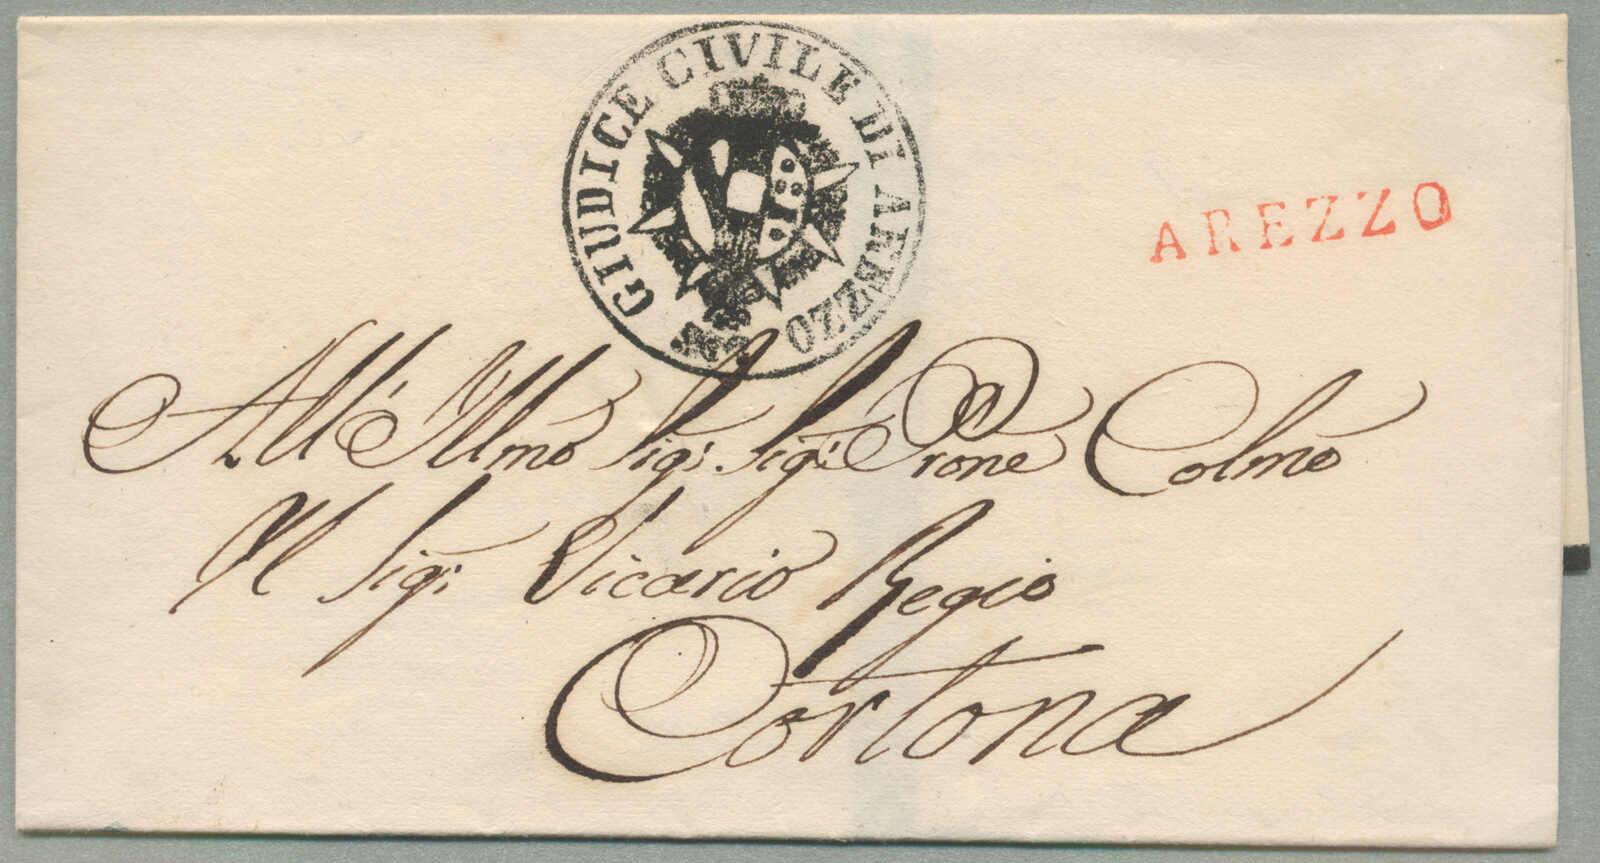 GIUDICE CIVILE DI AREZZO
AREZZO
All' Illmo Sig: Sig: Prone Colmo
Il Sig: Vicario Regio
Cortona